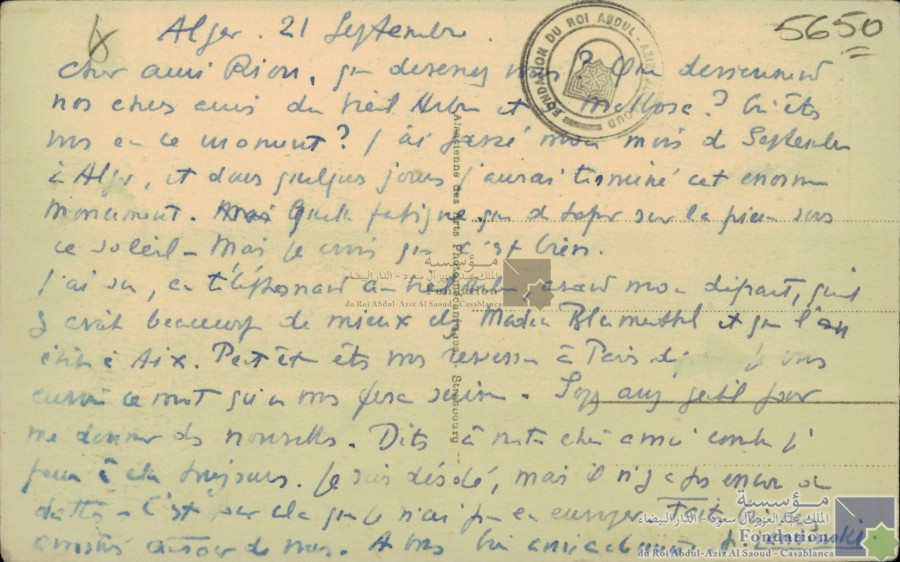 Alger. 21 Septembre.
5650
FONDATION DU ROI ABDUL-AZIZ
Cher ami, que devenez vous? Que deviennent
nos chers amis du et ? Où êtes
vous en ce moment? J'ai passé mon mois de Septembre
à Alger, et dans quelques jours j'aurai terminé cet enorme
monument. Mais Quelle fatigue que de taper sur la pierre sous
ce soleil - Mais je crois que c'est bien.
J'ai su, en téléphonant avant mon départ, qu'il
y avait beaucoup de mieux chez Madame Blumenthal et que l'on
était à Aix. Peut êt êtes vous revenu à Paris je vous
envoie ce mot qu'on vous fera suivre. Soyez assez gentil pour
me donner des nouvelles. Dites à notre cher ami combien je
pense à toujours. Je suis désolé, mais il n'y a pas encore de
dattes - C'est pour cela que je n'ai pu en envoyer. Faites
amitiés autour de vous. A vous bien amicalement P. Landowski.
Alsacienne des Arts Photomécaniques - Strasbourg
مؤسسة
الملك عبد العزيز آل سعود - الدار البيضاء
Fondation
du Roi Abdul-Aziz Al Saoud - Casablanca
مؤسسة
الملك عبد العزيز آل سعود - الدار البيضاء
Fondation
du Roi Abdul-Aziz Al Saoud - Casablanca